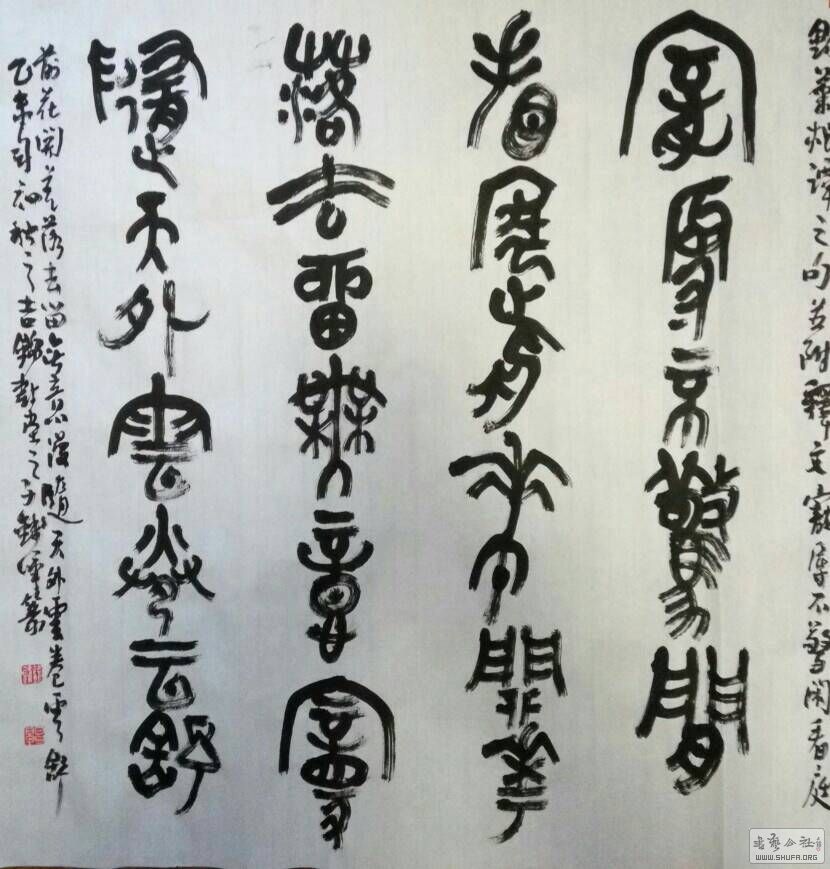 菜根譚之句并附釋文寵辱不驚閑看庭
寵辱不驚閒
看庭前花開華
落去留無意漫
隨天外雲卷云舒
前花開花落去留無意漫隨天外雲卷雲舒
乙未初秋之吉
書藝公社
WWW.SHUFA.ORG